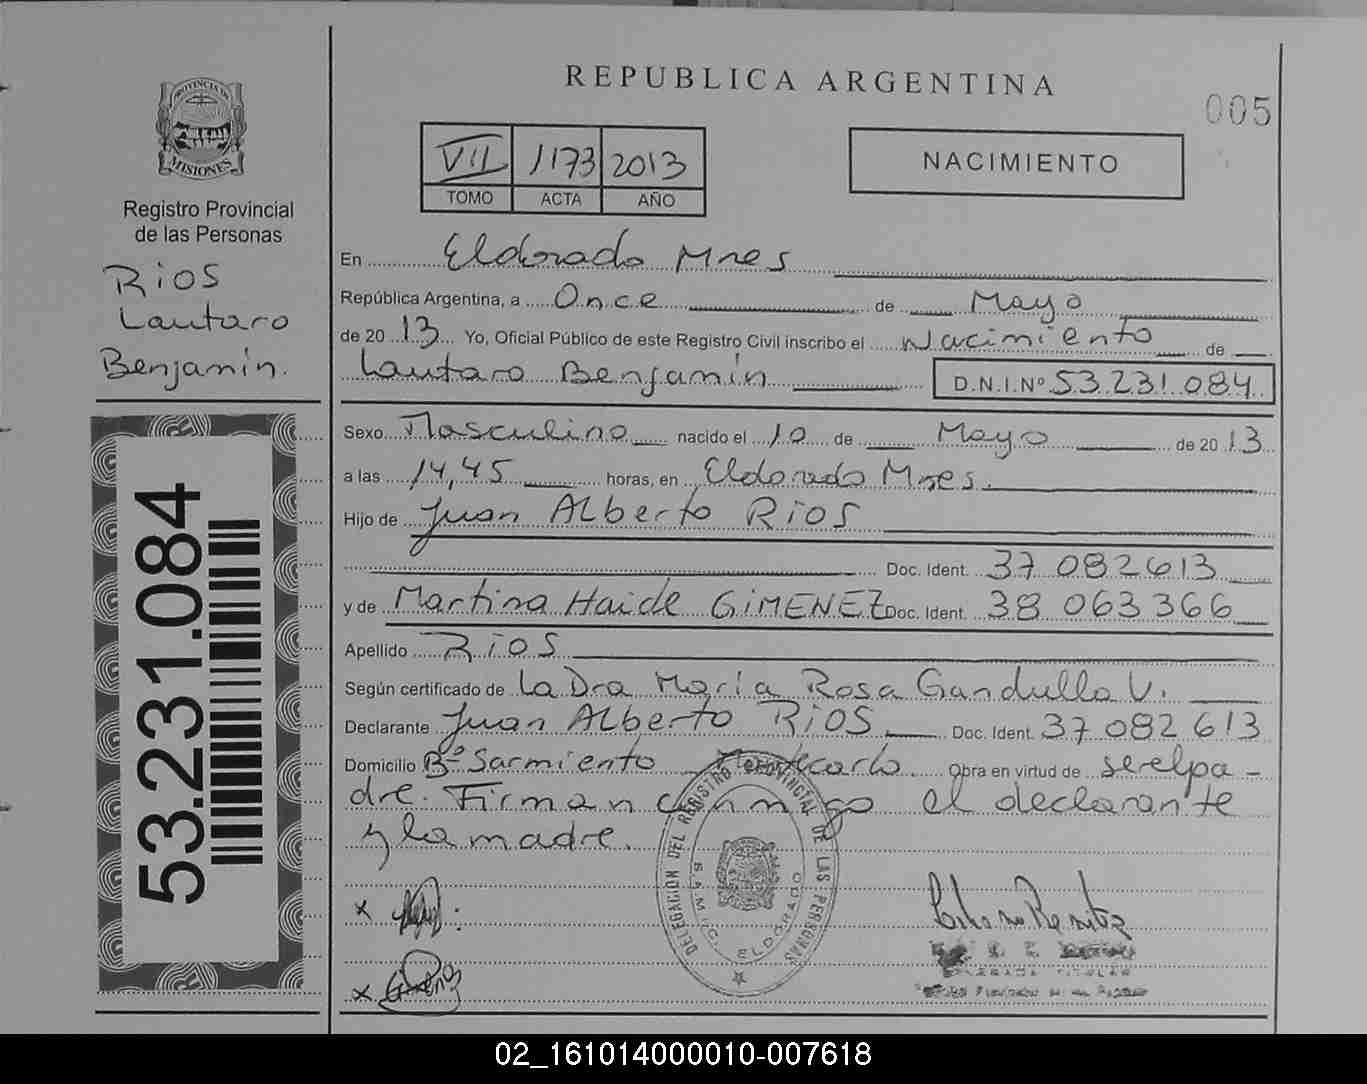 REPUBLICA ARGENTINA
005
PROVINCIA DE
MISIONES
Registro Provincial
de las Personas
RIOS
Lautaro
Benjamín.
53.231.084
VII 1173 2013
TOMO ACTA AÑO
NACIMIENTO
En Eldorado Mnes
República Argentina, a Once de Mayo
de 20 13 Yo, Oficial Público de este Registro Civil inscribo el Nacimiento de
Lautaro Benjamín D.N.I.Nº 53.231.084
Sexo Masculino nacido el 10 de Mayo de 20 13
a las 14,45 horas, en Eldorado Mnes.
Hijo de Juan ALberto RIOS
Doc. Ident. 37 082613
y de Martina Haide GIMENEZ Doc. Ident. 38 063 366
Apellido RIOS
Según certificado de La Dra María Rosa Gandulla V.
Declarante Juan ALberto RIOS Doc. Ident. 37 082 613
Domicilio Bº Sarmiento Montecarlo Obra en virtud de ser el pa-
dre. Firman conmigo el declarante
y la madre.
DELEGACION DEL REGISTRO PROVINCIAL DE LAS PERSONAS
ELDORADO
x
x Gimenez
Benitez
TITULAR
02_161014000010-007618